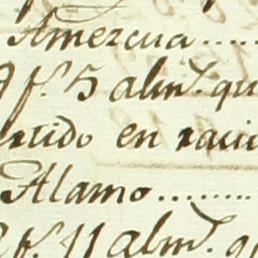 Amezcua.....
9 f.s 5 alm.s qu
rtido en racio
Alamo.........
2 f.s 11 alm.s q